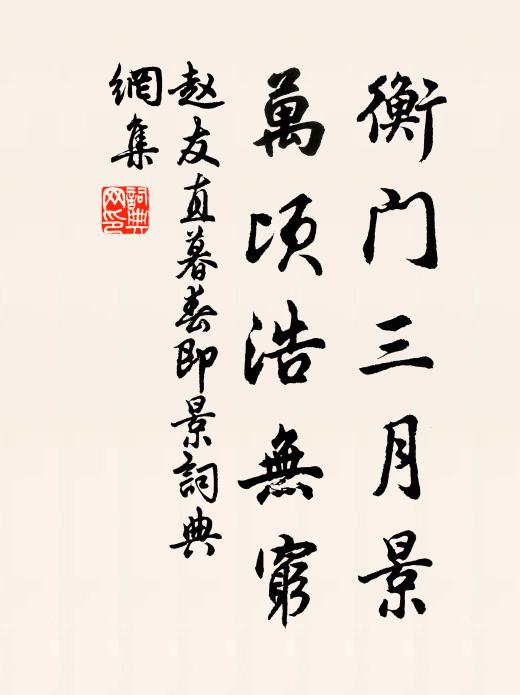 衡门三月景
萬顷浩無窮
赵友直暮春即景詞典
網集
詞典网印